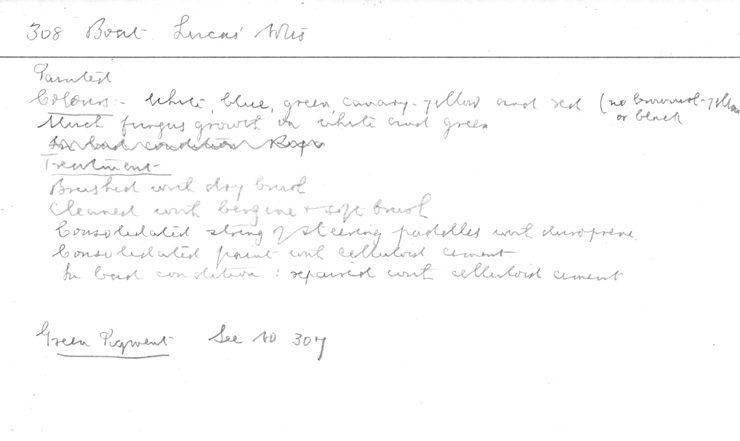 308 Boat Lucas' Wks
Painted
Colours:- White, blue, green, canary-yellow and red (no brownish-yellow
or black
Much fungus growth on white and green
In bad condition Rope
Treatment
Brushed with dry brush
Cleaned with benzine + soft brush
Consolidated string of steering paddles with duroprene
Consolidated paint with celluloid cement
In bad condition : repaired with celluloid cement
Green Pigment See No 307